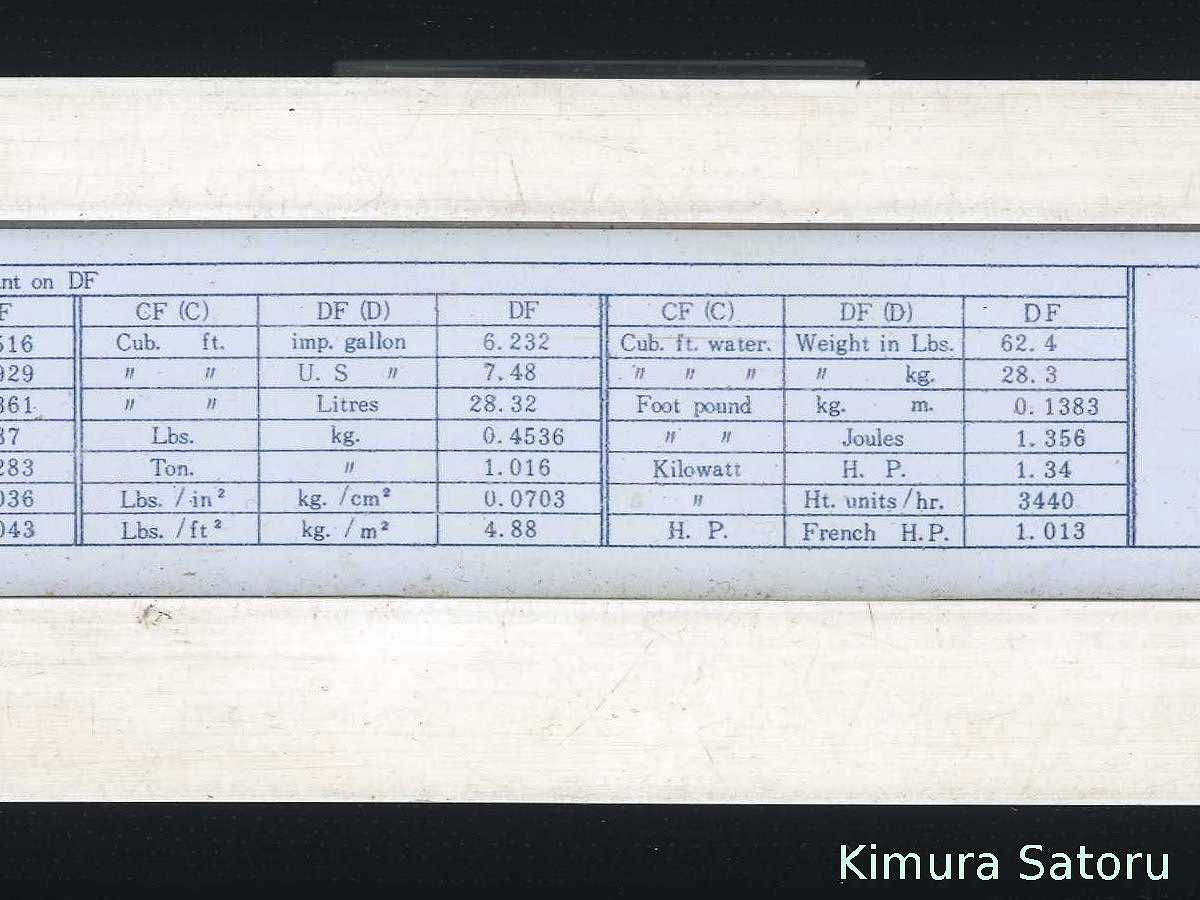 nt on DF
F CF (C) DF (D) DF CF (C) DF (D) DF
516 Cub. ft. imp. gallon 6.232 Cub. ft. water. Weight in Lbs. 62.4
929 〃 〃 U. S 〃 7.48 〃 〃 〃 〃 kg. 28.3
361 〃 〃 Litres 28.32 Foot pound kg. m. 0.1383
37 Lbs. kg. 0.4536 〃 〃 Joules 1.356
283 Ton. 〃 1.016 Kilowatt H. P. 1.34
036 Lbs. /in² kg. /cm² 0.0703 〃 Ht. units/hr. 3440
043 Lbs. /ft² kg. /m² 4.88 H. P. French H.P. 1.013
Kimura Satoru